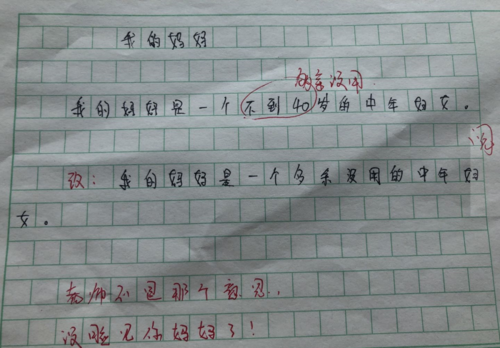 我的妈妈
多余没用
我的妈妈是一个不到40岁的中年妇女。
改：我的妈妈是一个多余没用的中年妇
女。
老师不是那个意思,
没脸见你妈妈了!